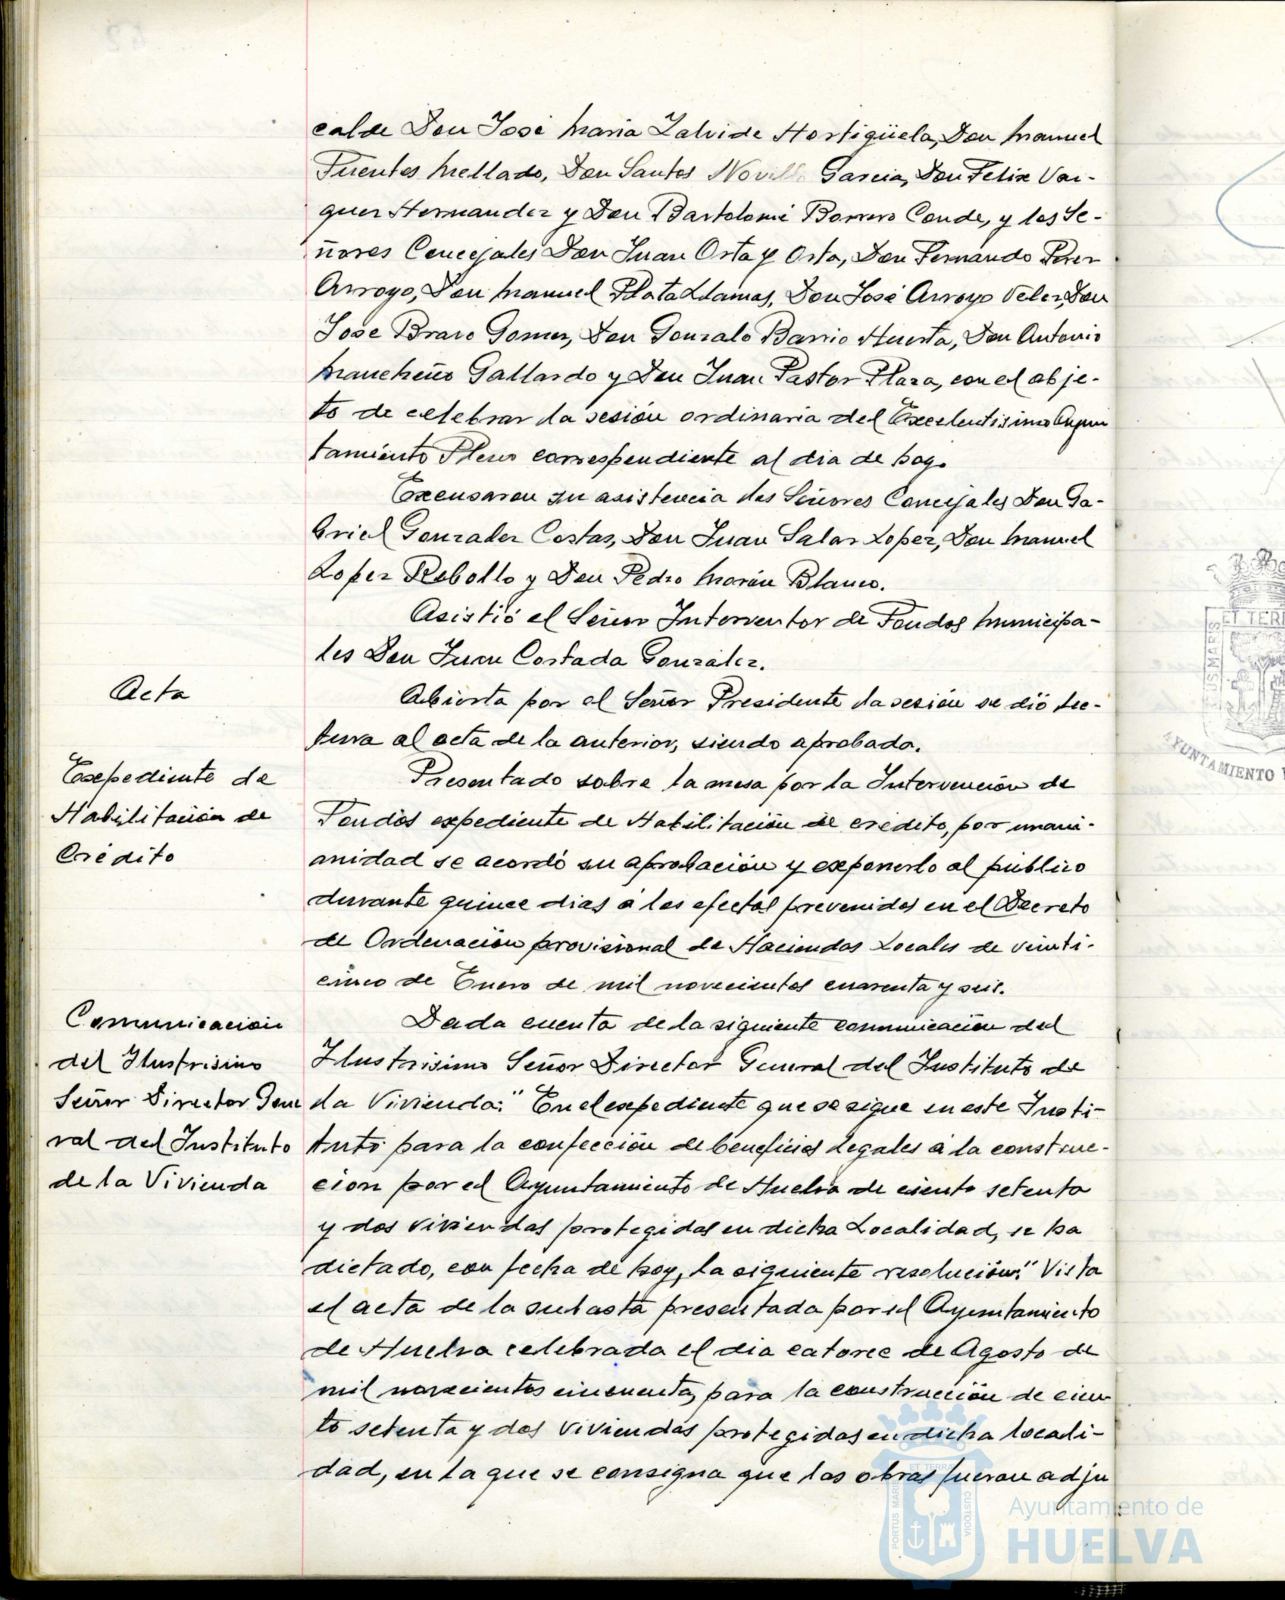 calde Don José Maria Zalvide Hortigüela, Don Manuel
Fuentes Mellado, Don Santos Novillo Garcia, Don Felix Vaz-
quez Hernandez y Don Bartolomé Borrero Conde, y los Se-
ñores Concejales Don Juan Orta y Orta, Don Fernando Perez
Arroyo, Don Manuel Plata Llamas, Don José Arroyo Velez, Don
Jose Bravo Gomez, Don Gonzalo Barrio Huerta, Don Antonio
Mancheño Gallardo y Don Juan Pastor Plaza, con el obje-
to de celebrar la sesión ordinaria del Excelentisimo Ayun
tamiento Pleno correspondiente al dia de hoy.
Excusaron su asistencia los Señores Concejales Don Ga-
briel Gonzalez Costas, Don Juan Salas Lopez, Don Manuel
Lopez Rebollo y Don Pedro Morón Blanco.
Asistió el Señor Interventor de Fondos Municipa-
les Don Juan Costada González.
Acta
Abierta por el Señor Presidente la sesión se dió lec-
tura al acta de la anterior, siendo aprobada.
Expediente de
Habilitación de
Crédito
Presentado sobre la mesa por la Intervención de
Fondos expediente de Habilitación de crédito, por unani-
midad se acordó su aprobación y exponerlo al público
durante quince dias á los efectos prevenidos en el Decreto
de Ordenación provisional de Haciendas Locales de veinti-
cinco de Enero de mil novecientos cuarenta y seis.
Comunicación
del Ilustrisimo
Señor Director Gene
ral del Instituto
de la Vivienda
Dada cuenta de la siguiente comunicación del
Ilustrisimo Señor Director General del Instituto de
la Vivienda: "En el expediente que se sigue en este Insti-
tuto para la confección de beneficios legales á la construc-
ción por el Ayuntamiento de Huelva de ciento setenta
y dos viviendas protegidas en dicha Localidad, se ha
dictado, con fecha de hoy, la siguiente resolución: "Vista
el acta de la subasta presentada por el Ayuntamiento
de Huelva celebrada el dia catorce de Agosto de
mil novecientos cincuenta, para la construcción de cien-
to setenta y dos viviendas protegidas en dicha locali-
dad, en la que se consigna que las obras fueran adju
ET TERRAE
AYUNTAMIENTO
PORTUS MARIS
ET TERRAE
CUSTODIA
Ayuntamiento de
HUELVA